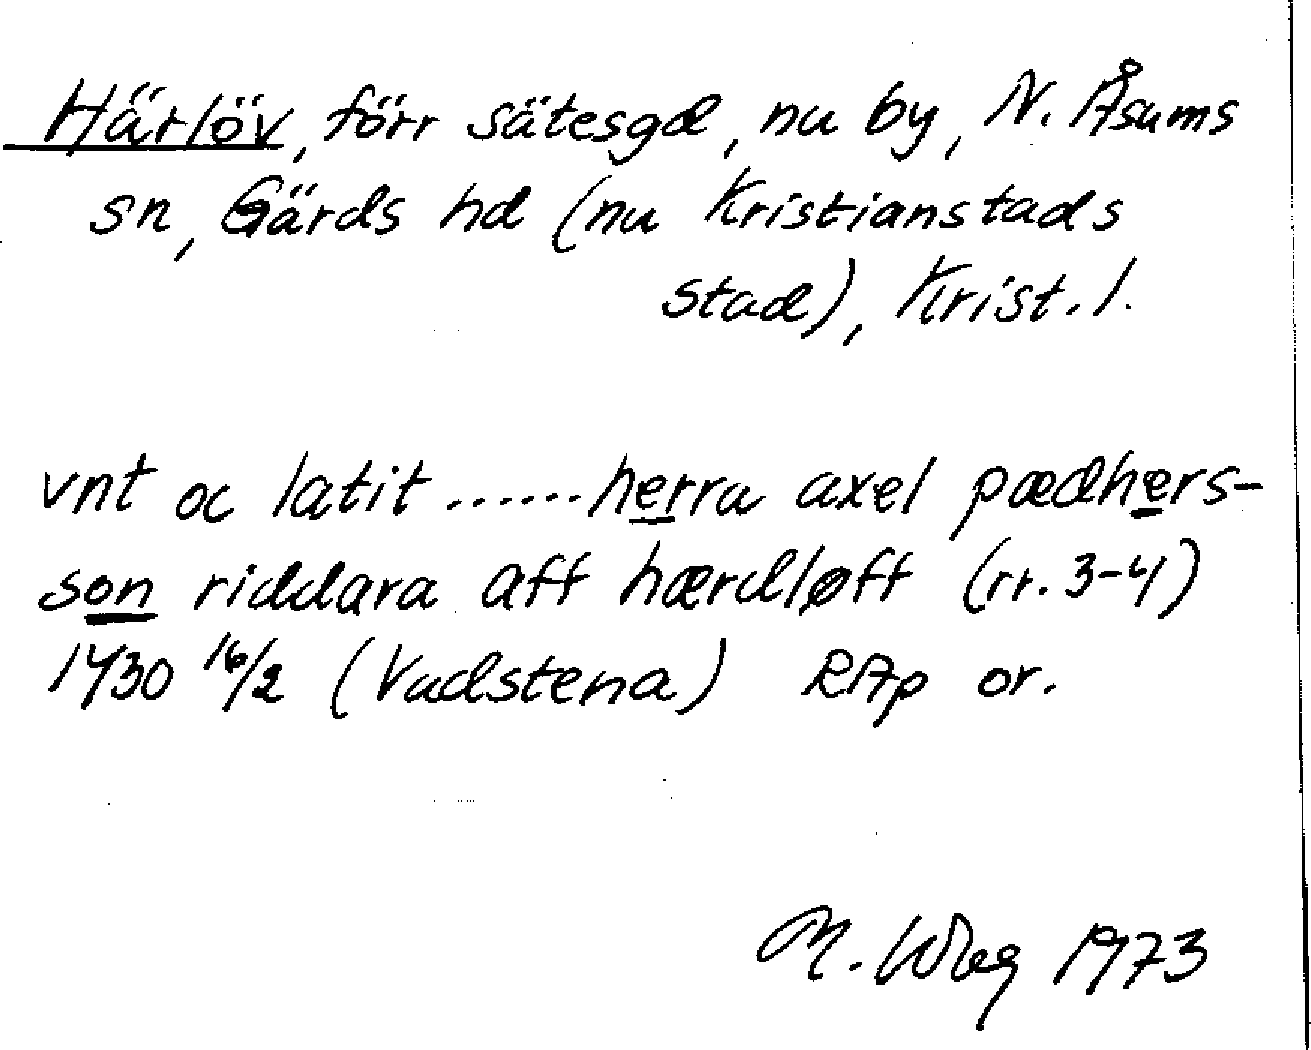 Härlöv, förr sätesgd, nu by, N. Åsums
sn, Gärds hd (nu Kristianstads
stad), Krist. l.
vnt oc latit ...... herra axel pædhers-
son riddara aff hærdløff (rr. 3-4)
1430 16/2 (Vadstena) RAp or.
M. Wbg 1973